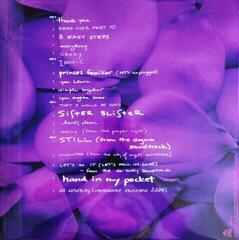 thank you
HEAD OVER FEET
8 EASY STEPS
everything
CRAZY
IRONIC
princes familiar (MTV unplugged)
you learn
simple together
you oughta know
THAT I WOULD BE GOOD
SISTER BLISTER
hands clean
mercy (from the prayer cycle)
STILL (from the dogma
soundtrack)
uninvited (from the city of angels soundtrack)
LET'S DO IT (LET'S FALL IN LOVE)
- from the de-lovely soundtrack
hand in my pocket